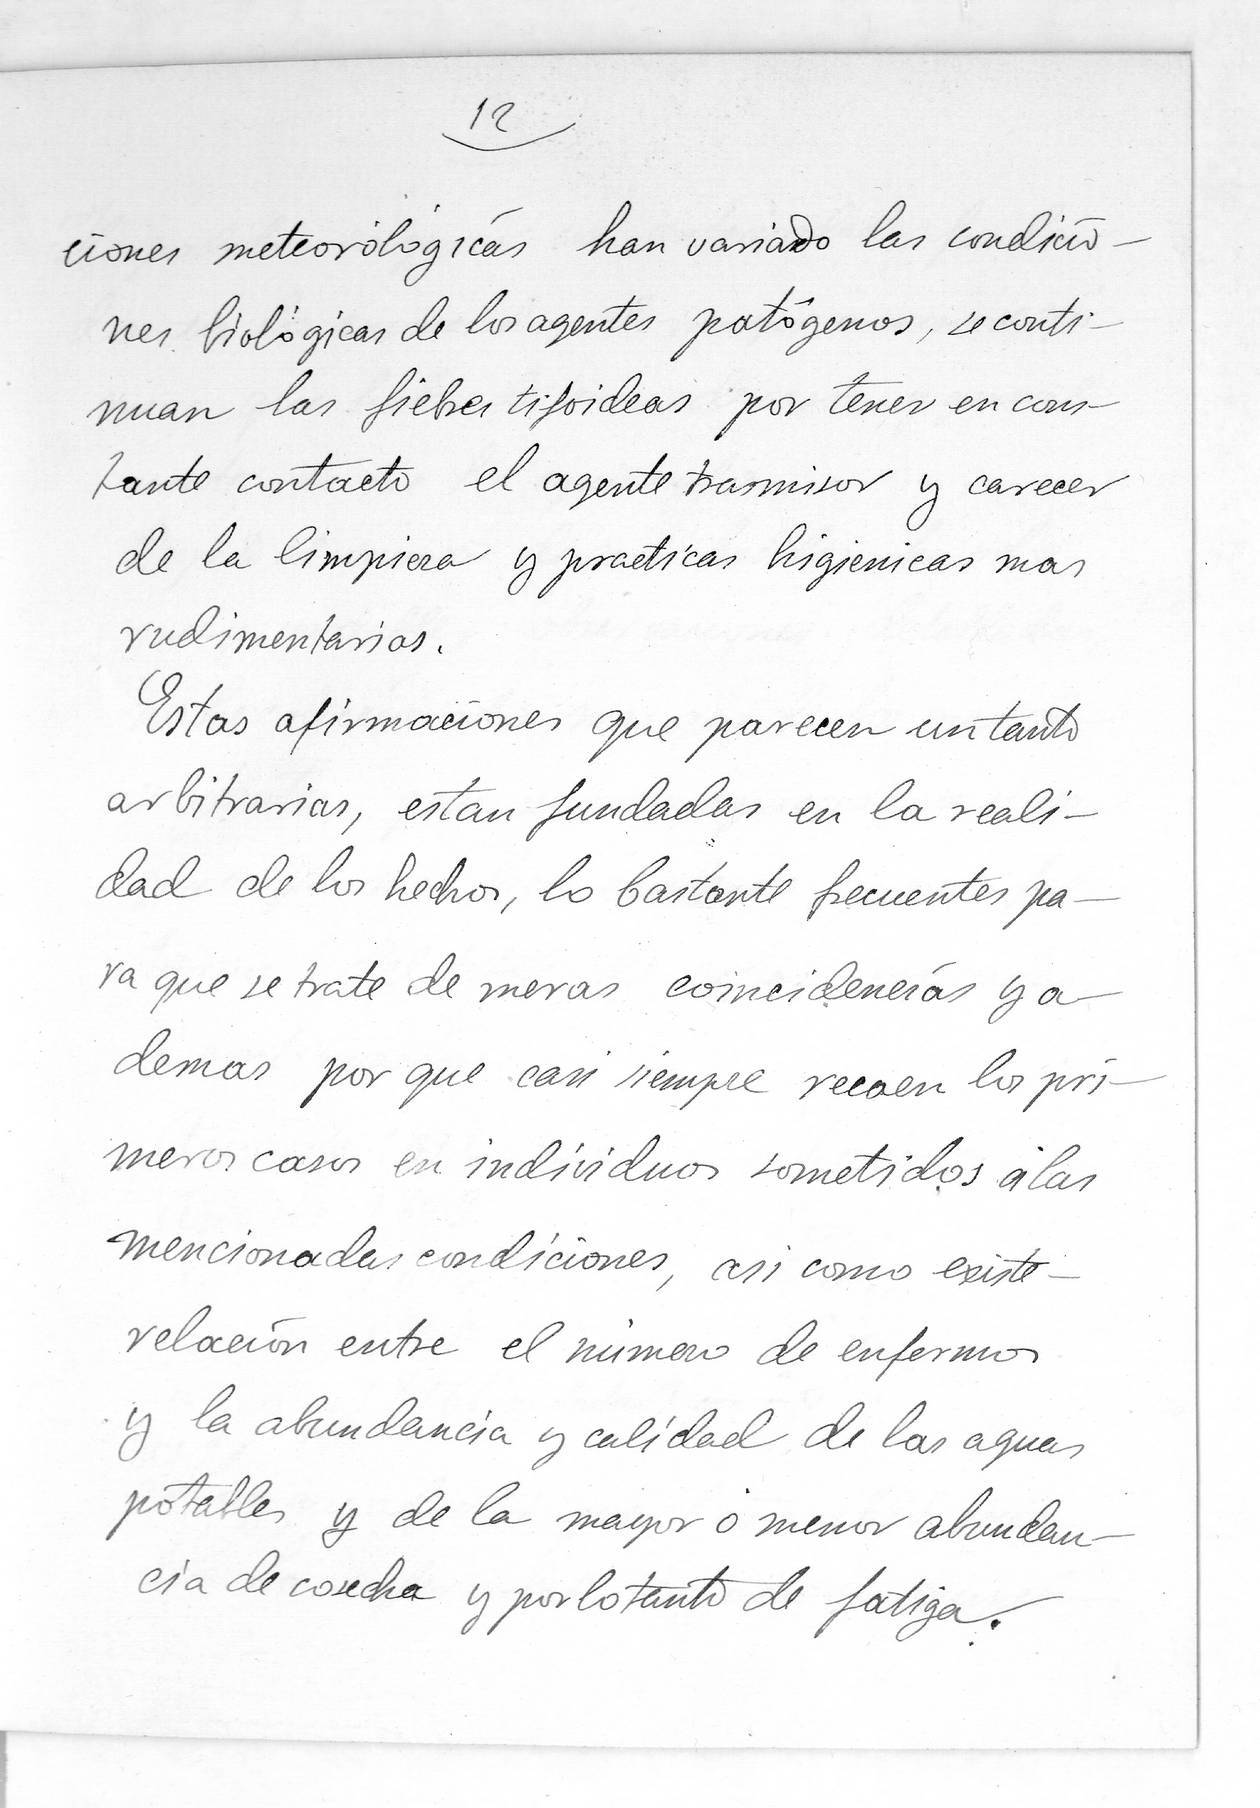 12
ciones meteorológicas han variado las condicio-
nes biológicas de los agentes patógenos, se conti-
nuan las fiebres tifoideas por tener en cons-
tante contacto el agente trasmisor y carecer
de la limpieza y practicas higienicas mas
rudimentarias.
Estas afirmaciones que parecen un tanto
arbitrarias, estan fundadas en la reali-
dad de los hechos, lo bastante frecuentes pa-
ra que se trate de meras coincidencias y a-
demas por que casi siempre recaen los pri-
meros casos en individuos sometidos á las
mencionadas condiciones, asi como existe-
relación entre el número de enfermos
y la abundancia y calidad de las aguas
potables y de la mayor ó menor abundan-
cia de cosecha y por lo tanto de fatiga.